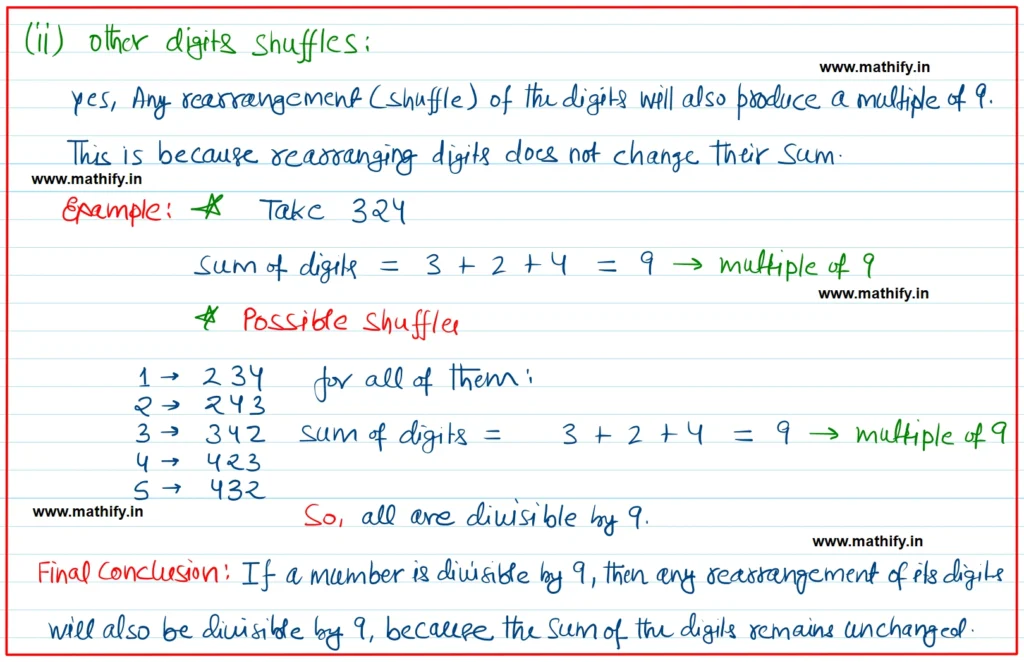 (ii) Other digits shuffles:
www.mathify.in
yes, Any rearrangement (shuffle) of the digits will also produce a multiple of 9.
This is because rearranging digits does not change their sum.
www.mathify.in
Example: ☆ Take 324
sum of digits = 3 + 2 + 4 = 9 → multiple of 9
www.mathify.in
☆ Possible shuffles
1 → 234 for all of them:
2 → 243
3 → 342 sum of digits = 3 + 2 + 4 = 9 → multiple of 9
4 → 423
5 → 432
www.mathify.in
So, all are divisible by 9.
www.mathify.in
Final Conclusion: If a number is divisible by 9, then any rearrangement of its digits
will also be divisible by 9, because the sum of the digits remains unchanged.